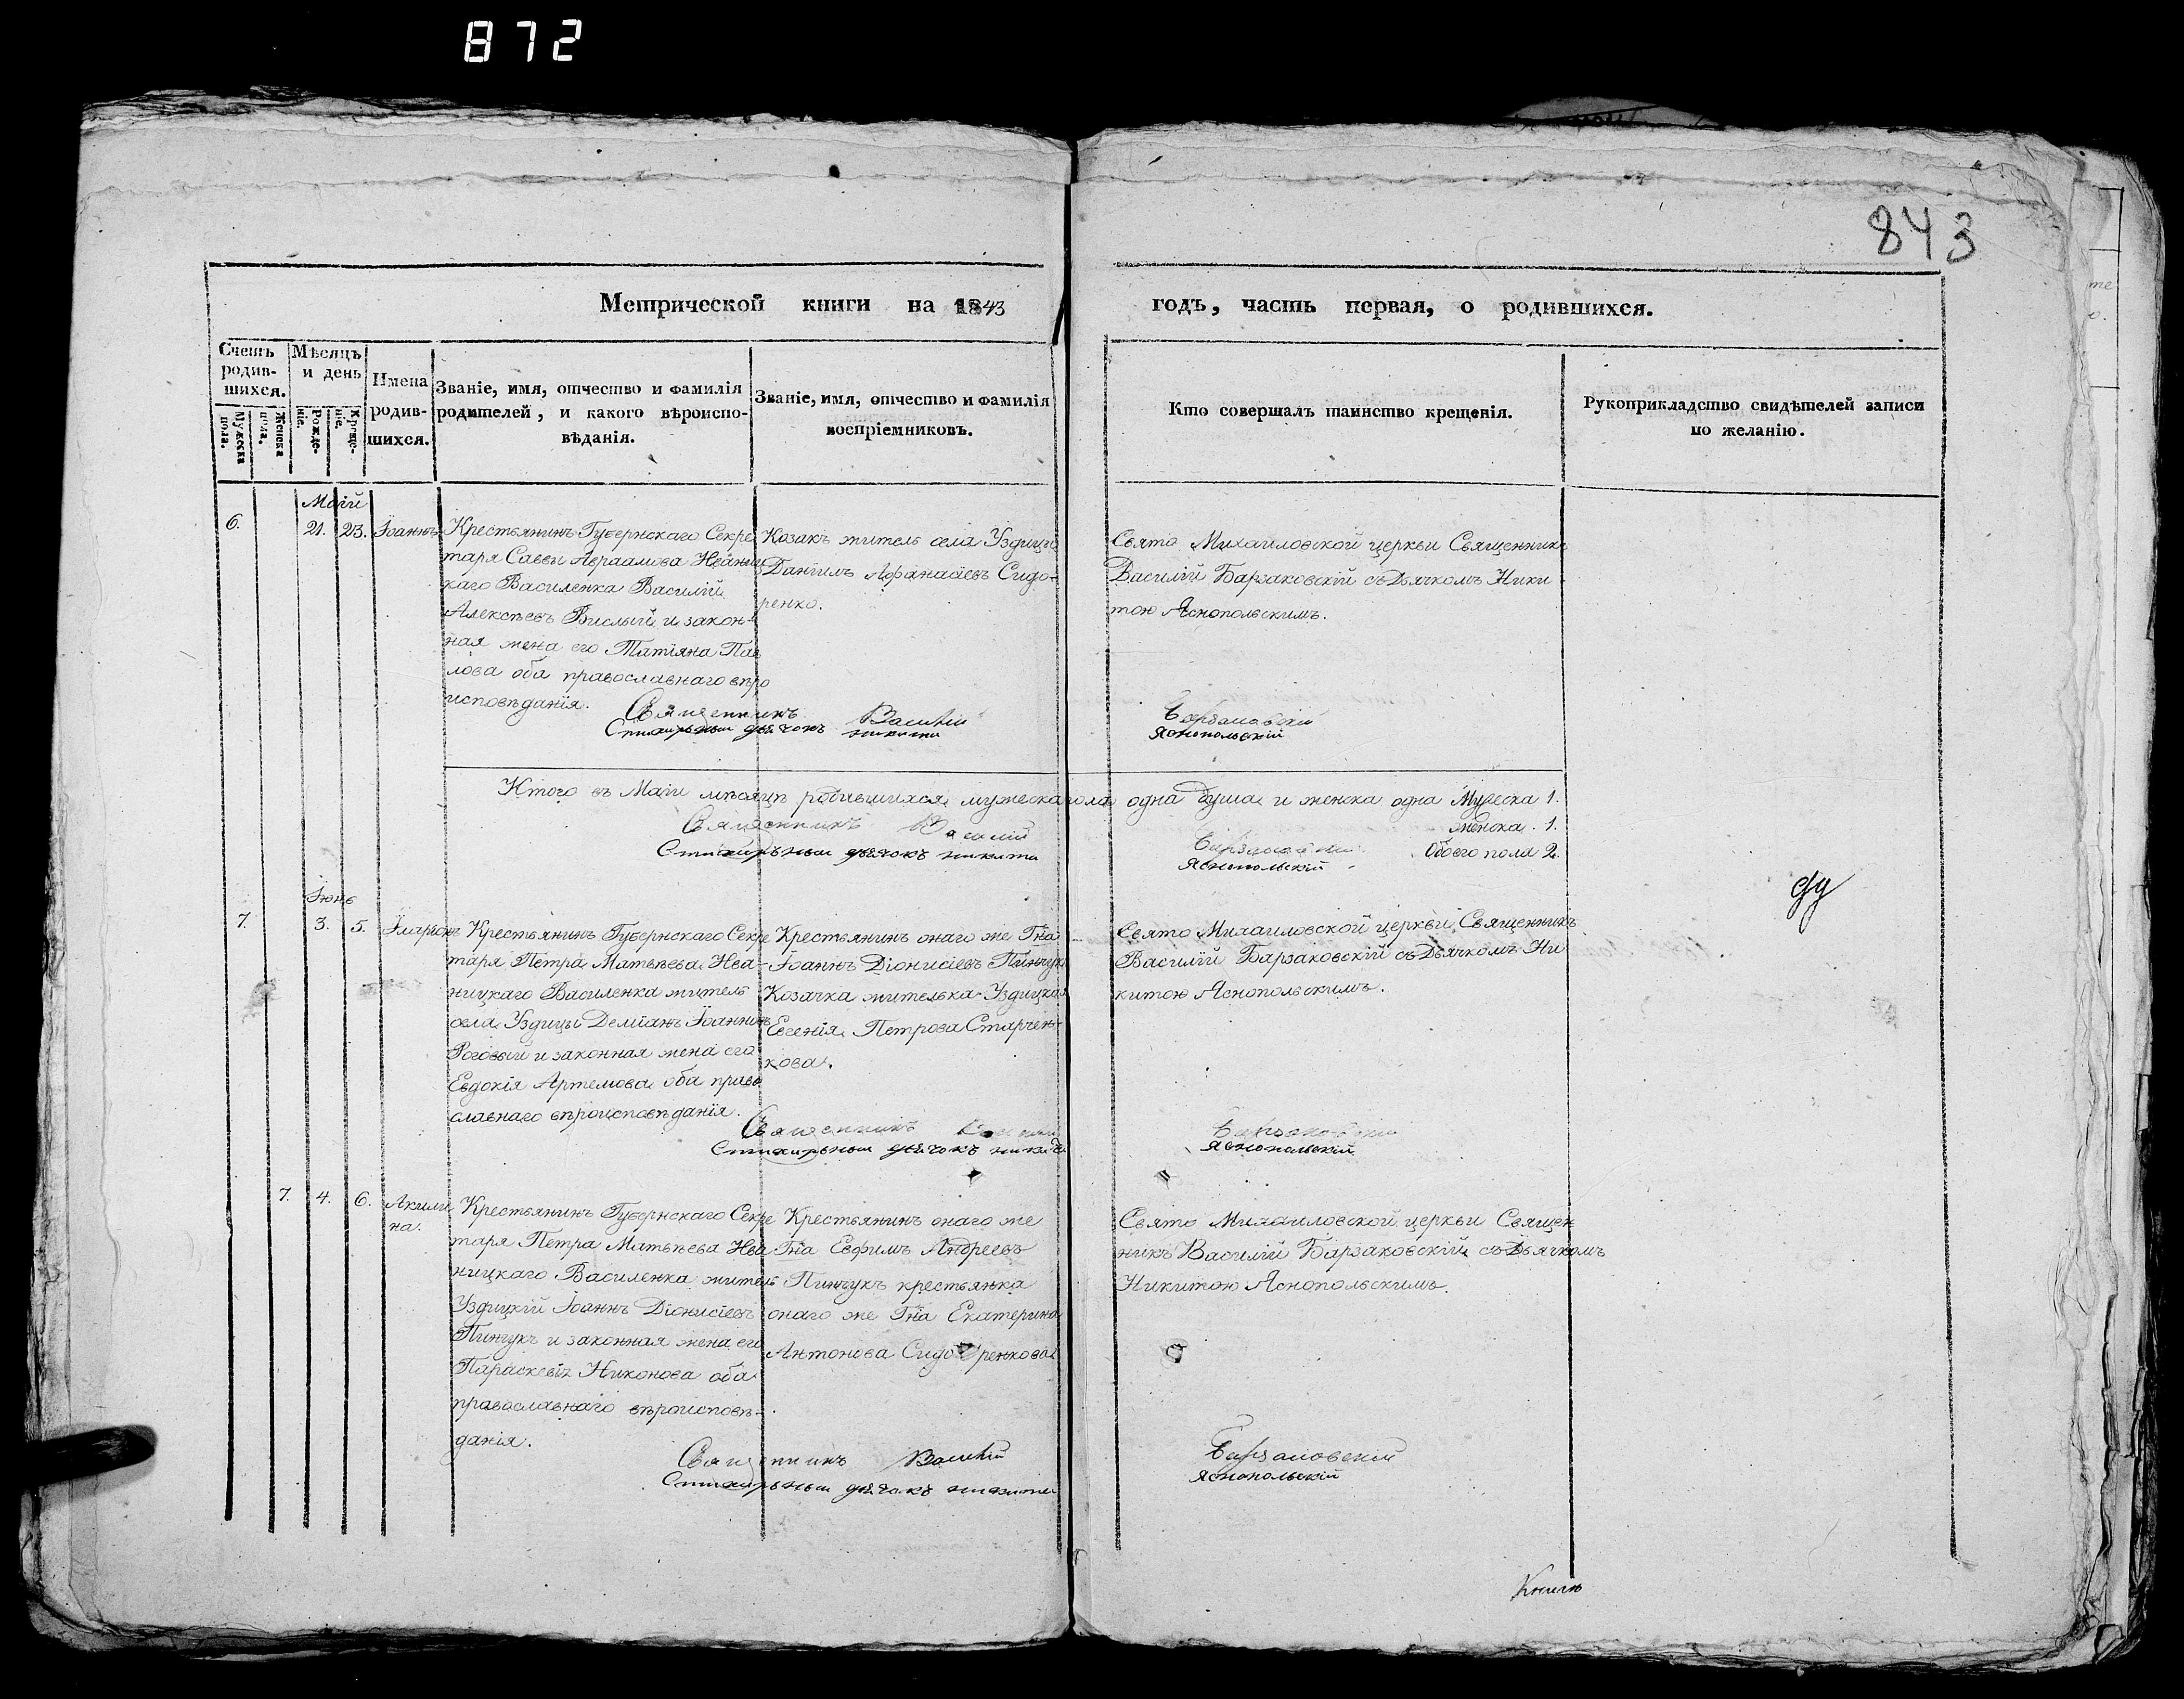 872
843
Метрической книги на 1843 годъ, часть первая, о родившихся.
Счетъ родив-шихся.
Мужеска пола.
Женска пола.
Мѣсяцъ и день
Рожде-нія.
Креще-нія.
Имена родив-шихся.
Званіе, имя, отчество и фамилія родителей, и какого вѣроиспо-вѣданія.
Званіе, имя, отчество и фамилія воспріемниковъ.
Кто совершалъ таинство крещенія.
Рукоприкладство свидѣтелей записи по желанію.
Маій
6. 21. 23. Іоаннъ
Крестьянинъ Губернскаго Секре
таря Саввы Авраамова Иваниц
каго Василенка Василій
Алексѣевъ Вислый и закон-
ная жена его Татіяна Пав
лова оба православнаго вѣро
исповѣданія.
Козакъ житель села Уздицы
Даніилъ Афанасіевъ Сидо-
ренко.
Свято Михаиловской церкви Священникъ
Василій Барзаковскій съ Дьячкомъ Ники
тою Яснопольскимъ.
Священникъ Василій Барзаковскій
Стихирный дьячокъ Никита Яснопольскій
Итого въ Маіи мѣсяцѣ родившихся мужеска пола одна душа и женска одна Мужеска 1.
женска. 1.
Обоего пола 2.
Священникъ Василій Барзаковскій
Стихирный дьячокъ Никита Яснопольскій
Іюнь
7. 3. 5. Иларіонъ
Крестьянинъ Губернскаго Секре
таря Петра Матвѣева Ива-
ницкаго Василенка житель
села Уздицы Деміанъ Іоанновъ
Роговый и законная жена его
Евдокія Артемова оба право
славнаго вѣроисповѣданія.
Крестьянинъ онаго же Гна
Іоаннъ Діонисіевъ Пинчукъ
Козачка жителька Уздицкая
Евгенія Петрова Старчен-
кова.
Свято Михаиловской церкви Священникъ
Василій Барзаковскій съ Дьячкомъ Ни
китою Яснопольскимъ.
Священникъ Василій Барзаковскій
Стихирный дьячокъ Никита Яснопольскій
7. 4. 6. Акили
на.
Крестьянинъ Губернскаго Секре
таря Петра Матвѣева Ива
ницкаго Василенка житель
Уздицкій Іоаннъ Діонисіевъ
Пинчукъ и законная жена его
Параскевія Никонова оба
православнаго вѣроисповѣ-
данія.
Крестьянинъ онаго же
Гна Евфимъ Андреевъ
Пинчукъ крестьянка
онаго же Гна Екатерина
Антонова Сидоренкова
Свято Михаиловской церкви Священ
никъ Василій Барзаковскій съ Дьячкомъ
Никитою Яснопольскимъ.
Священникъ Василій Барзаковскій
Стихирный дьячокъ Никита Яснопольскій